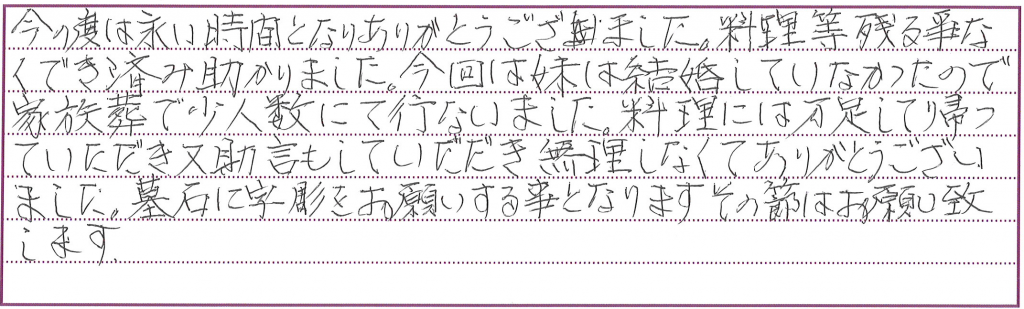 今の度は永い時間となりありがとうございました。料理等残る事な
くでき済み助かりました。今回は妹は結婚していなかったので
家族葬で少人数にて行ないました。料理には万足して帰っ
ていただき又助言もしていただき無理しなくてありがとうござい
ました。墓石に字彫をお願いする事となりますその節はお願い致
します.